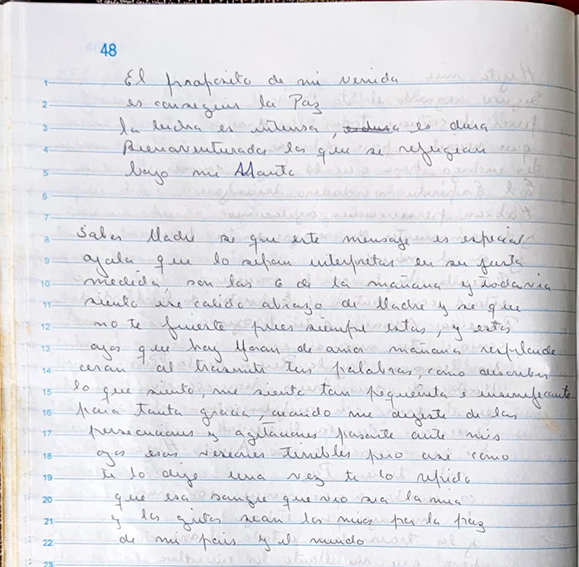 48
El proposito de mi venida
es conseguir la Paz
la lucha es intensa, es dura
Bienaventurados los que se refugian
bajo mi Manto
Sabes Madre se que este mensaje es especial
ojala que lo sepan interpretar en su justa
medida, son las 6 de la mañana y todavia
siento ese calido abrazo de Madre y se que
no te fuiste pues siempre estas, y estos
ojos que hoy lloran de amor mañana resplande
ceran al trasmitir tus palabras, como describir
lo que siento, me siento tan pequeñita e insignificante
para tanta gracia, cuando me dijiste de las
persecuciones y agitaciones pasaste ante mis
ojos esas visiones terribles pero asi como
te lo dije una vez te lo repito
que esa sangre que veo sea la mia
y los gritos sean los mios por la paz
de mi pais y el mundo
1
2
3
4
5
6
7
8
9
10
11
12
13
14
15
16
17
18
19
20
21
22
23